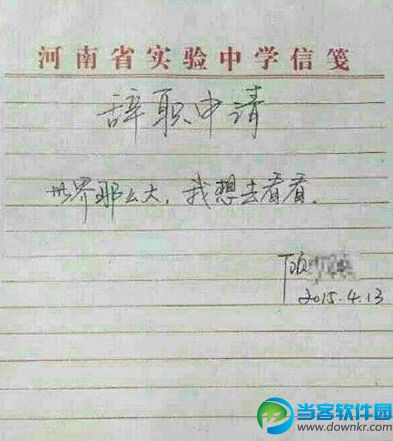 河南省实验中学信笺
辞职申请
世界那么大，我想去看看。
顾
2015.4.13
当客软件园
www.downkr.com